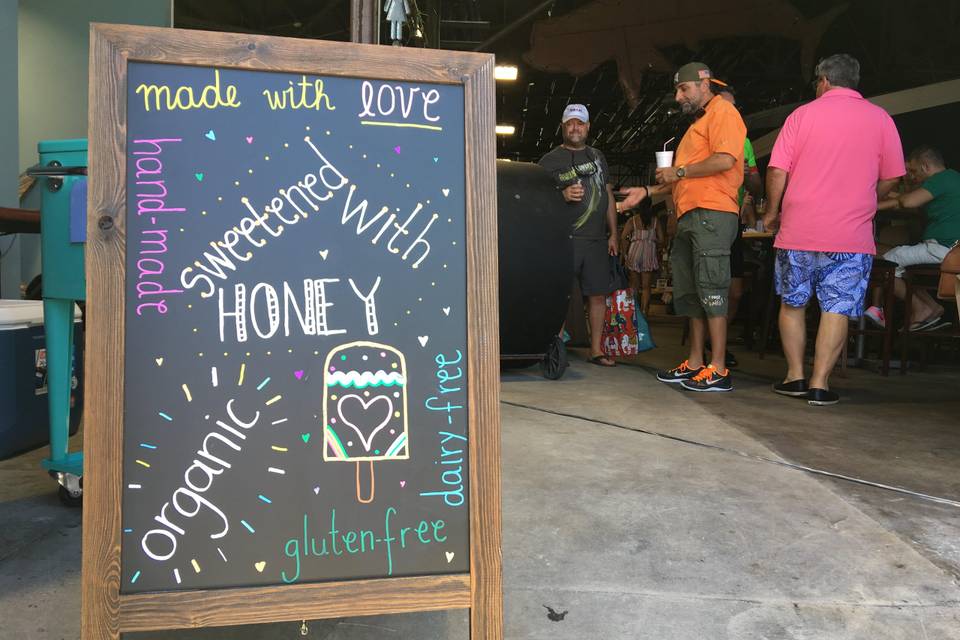 made with love
hand-made
sweetened with
HONEY
organic
dairy-free
gluten-free